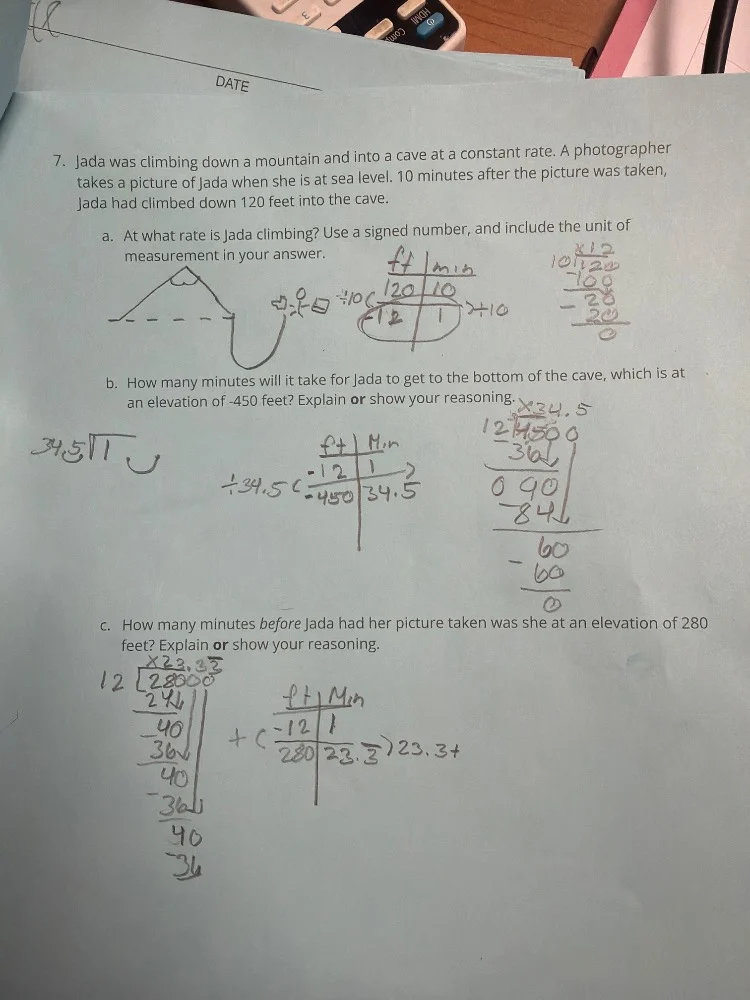 DATE
7. Jada was climbing down a mountain and into a cave at a constant rate. A photographer
takes a picture of Jada when she is at sea level. 10 minutes after the picture was taken,
Jada had climbed down 120 feet into the cave.
a. At what rate is Jada climbing? Use a signed number, and include the unit of
measurement in your answer.
ft | min
÷10 ( 120 | 10
-12 | 1 ) ÷10
x12
10 120
-100
20
- 20
0
b. How many minutes will it take for Jada to get to the bottom of the cave, which is at
an elevation of -450 feet? Explain or show your reasoning.
34.5
ft | Min
-12 | 1
÷34.5 ( -450 | 34.5
x34.5
12 4500
- 36
0 90
-84
60
- 60
0
c. How many minutes before Jada had her picture taken was she at an elevation of 280
feet? Explain or show your reasoning.
x23.33
12 28000
24
-40
36
40
-36
40
-36
ft | Min
+ ( -12 | 1
280 | 23.3 ) 23.3+
HDMI
3